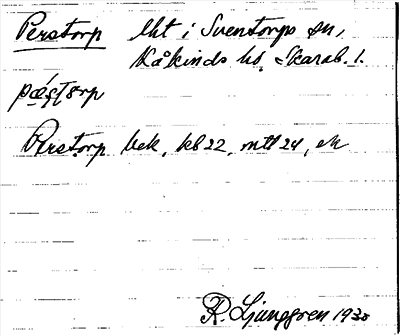 Perstorp lht i Sventorps sn,
Kåkinds hd, Skarab. l.
pæ´sʃtɔrp
Perstorp bek, kbl 22, mtbl 24, ek
R. Ljunggren 1930